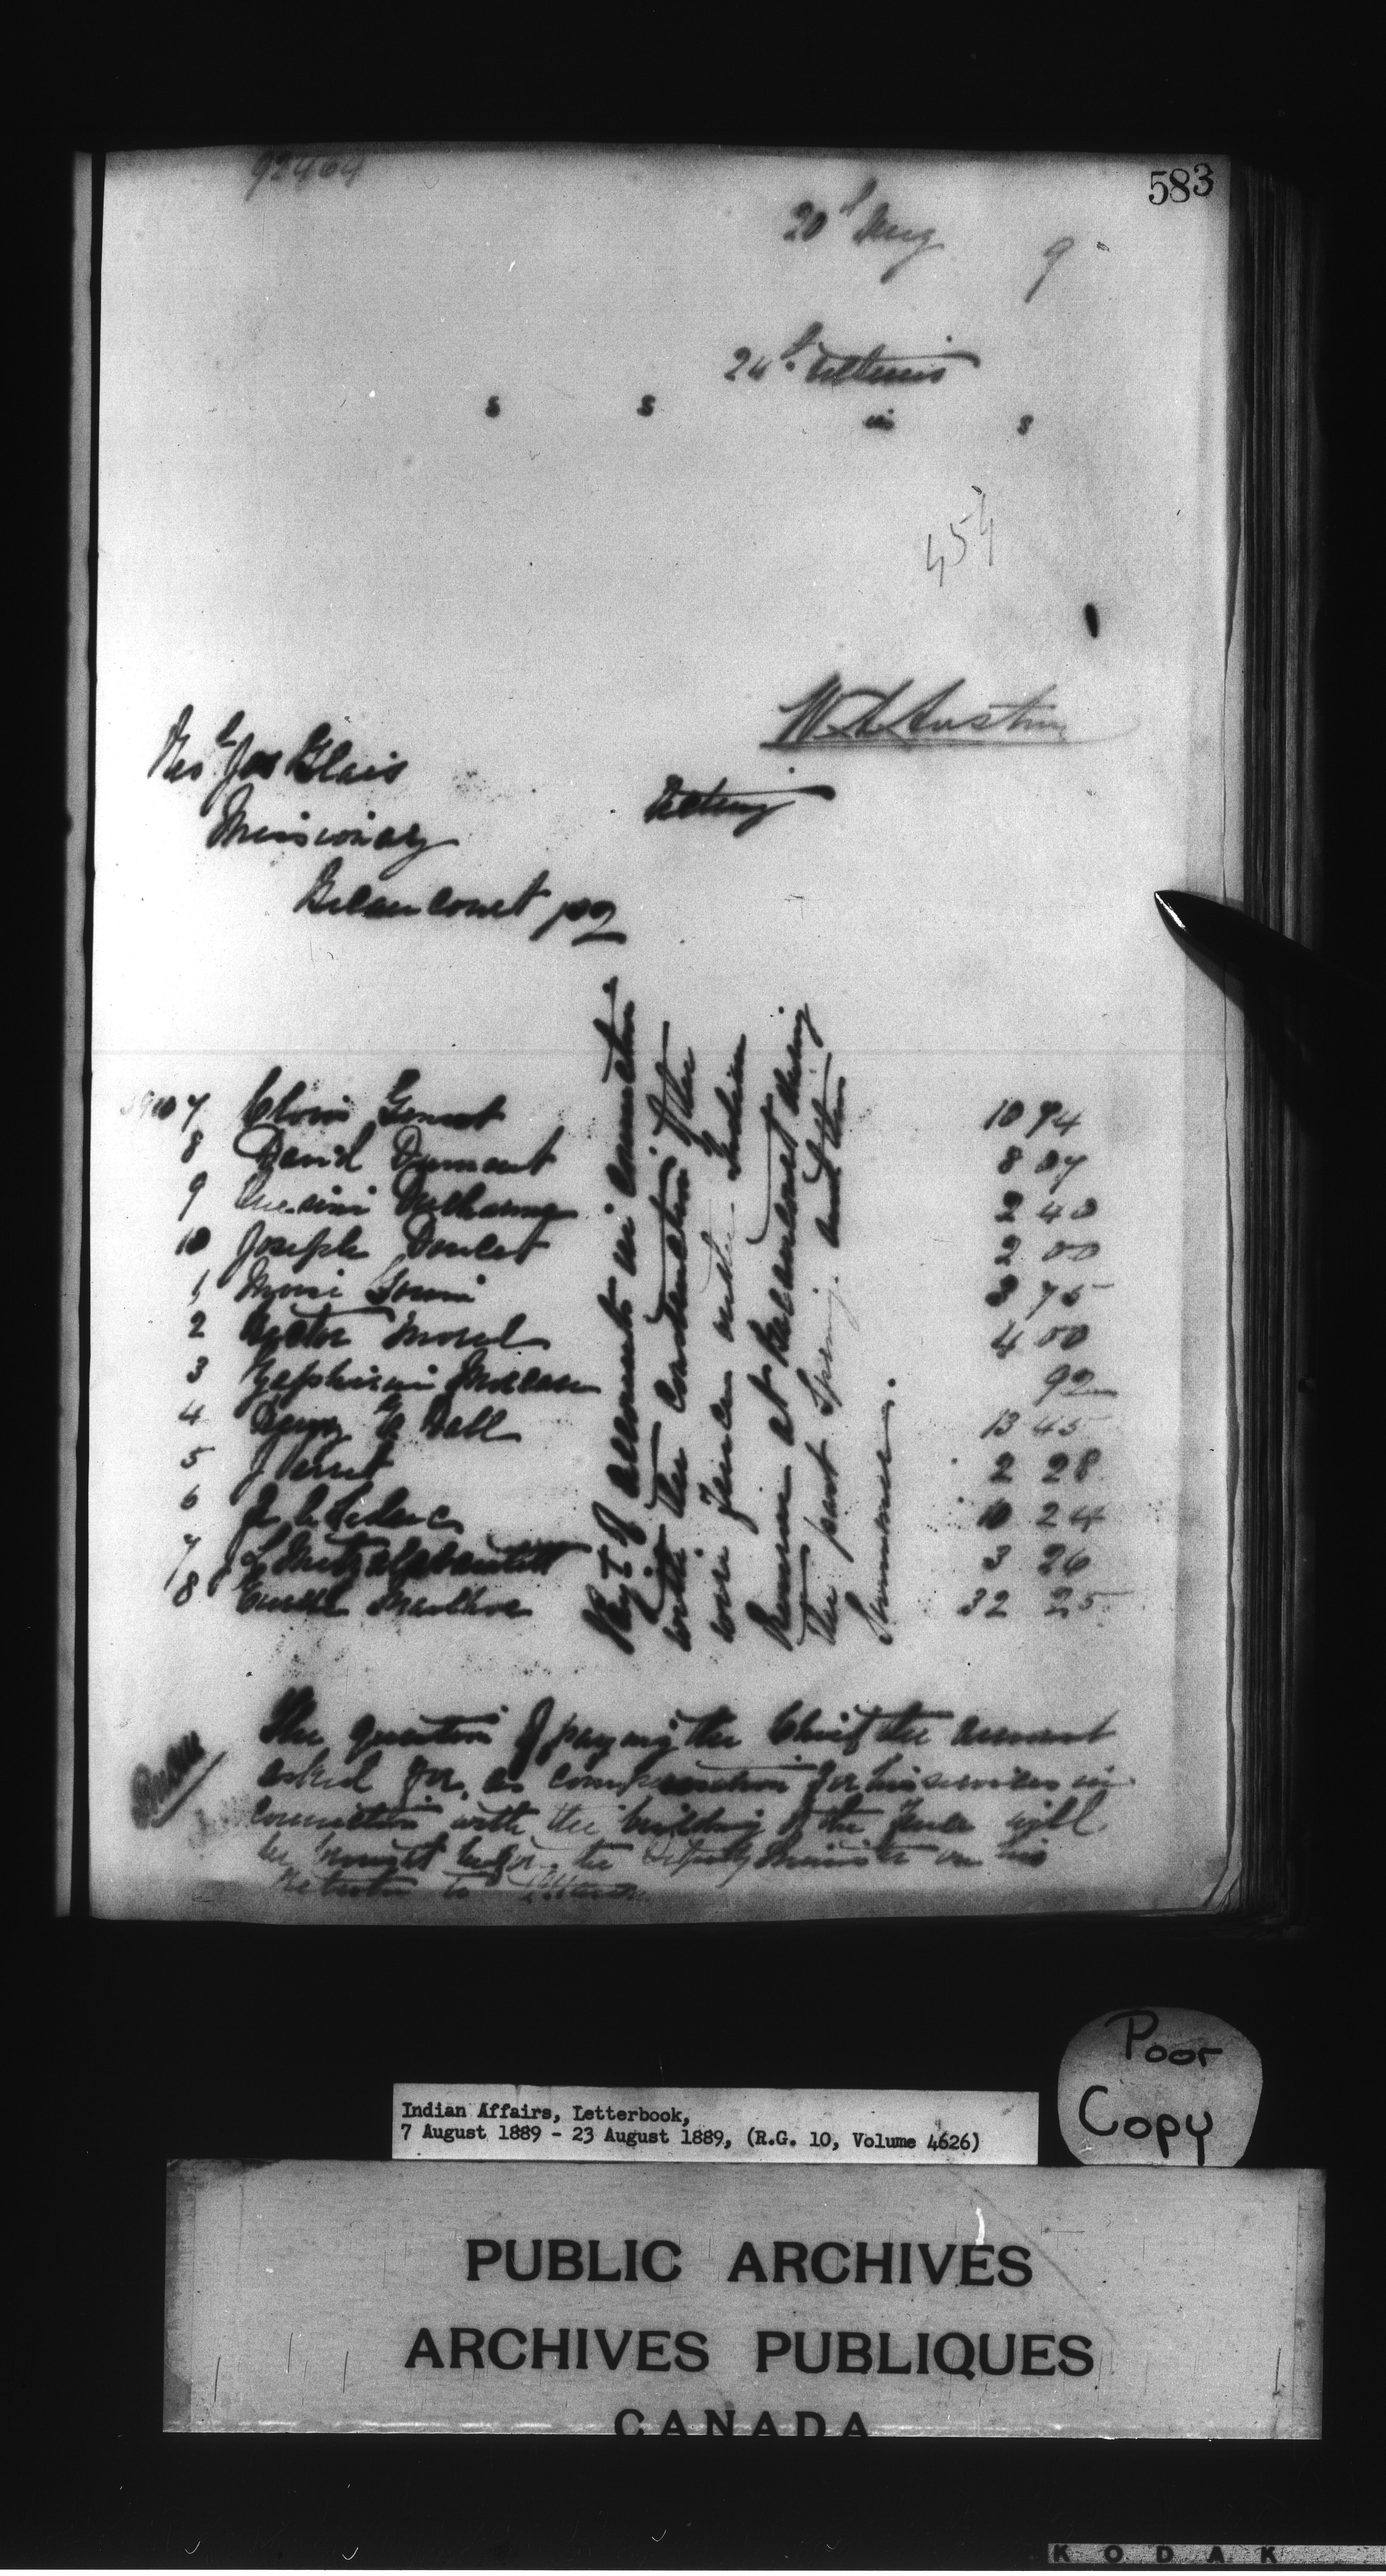 92464
583
20th Aug 9
24th Ultimo
s s in s
454
W A Austin
Revd Jos Blais
Acting
Missionary
Becancourt PQ
7 Clovis 10 94
8 David Dumont 8 07
9 Ducharme 2 40
10 Joseph Doucet 2 00
1 3 75
2 Hector Morel 4 00
3 Zephirin Moreau 92
4 Bell 13 45
5 2 28
6 J. C. Leclerc 10 24
7 3 26
8 32 25
Pay't of accounts in connection
with the construction of the
wire fence under Indian
Reserve at Becancourt during
the past Spring and this
Summer.
The question of paying the Chief the amount
asked for, as compensation for his services in
connection with the building of the fence will
be brought before the Deputy Minister on his
return to Ottawa.
Poor
Copy
Indian Affairs, Letterbook,
7 August 1889 - 23 August 1889, (R.G. 10, Volume 4626)
PUBLIC ARCHIVES
ARCHIVES PUBLIQUES
CANADA
KODAK